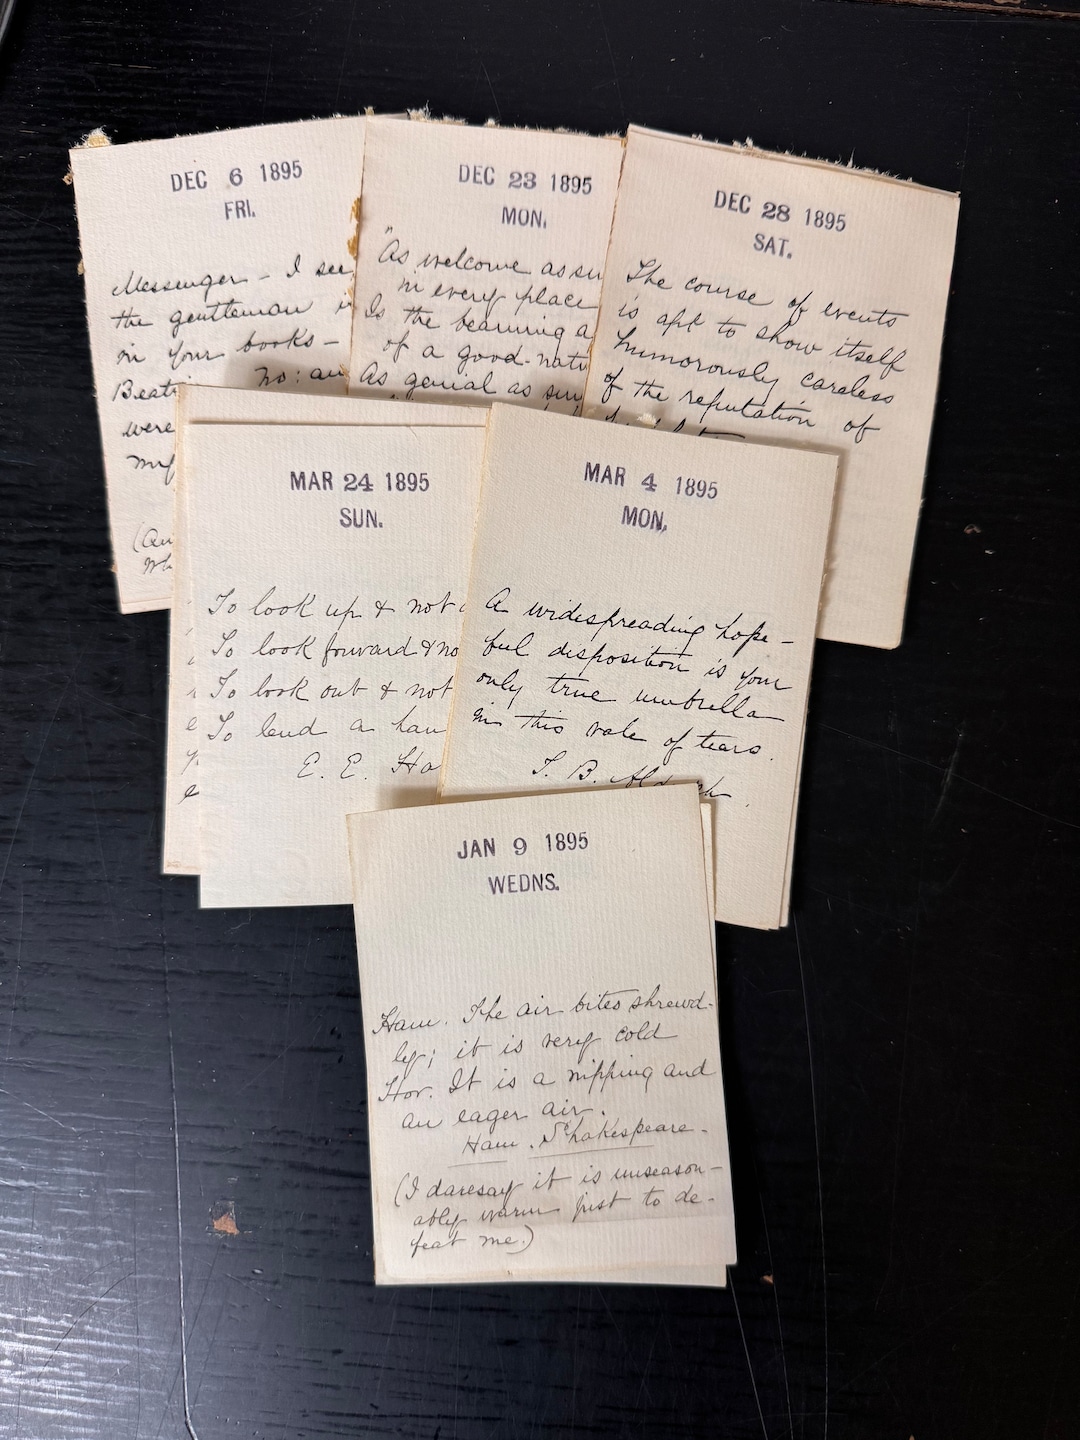 DEC 6 1895
FRI.
Messenger – I see
the gentleman
in your books –
Beat
no: an
were
my
DEC 23 1895
MON.
"As welcome as su
in every place
Is the beaming a
of a good-natu
As genial as sun
DEC 28 1895
SAT.
The course of events
is apt to show itself
humorously careless
of the reputation of
MAR 24 1895
SUN.
To look up & not
To look forward & no
To look out & not
To lend a han
E. E. Ha
MAR 4 1895
MON.
A widespreading hope-
ful disposition is your
only true umbrella
in this vale of tears.
T. B. Ald ch.
JAN 9 1895
WEDNS.
Ham. The air bites shrewd-
ly; it is very cold
Hor. It is a nipping and
an eager air.
Ham. Shakespeare.
(I daresay it is unseason-
ably warm just to de-
feat me.)